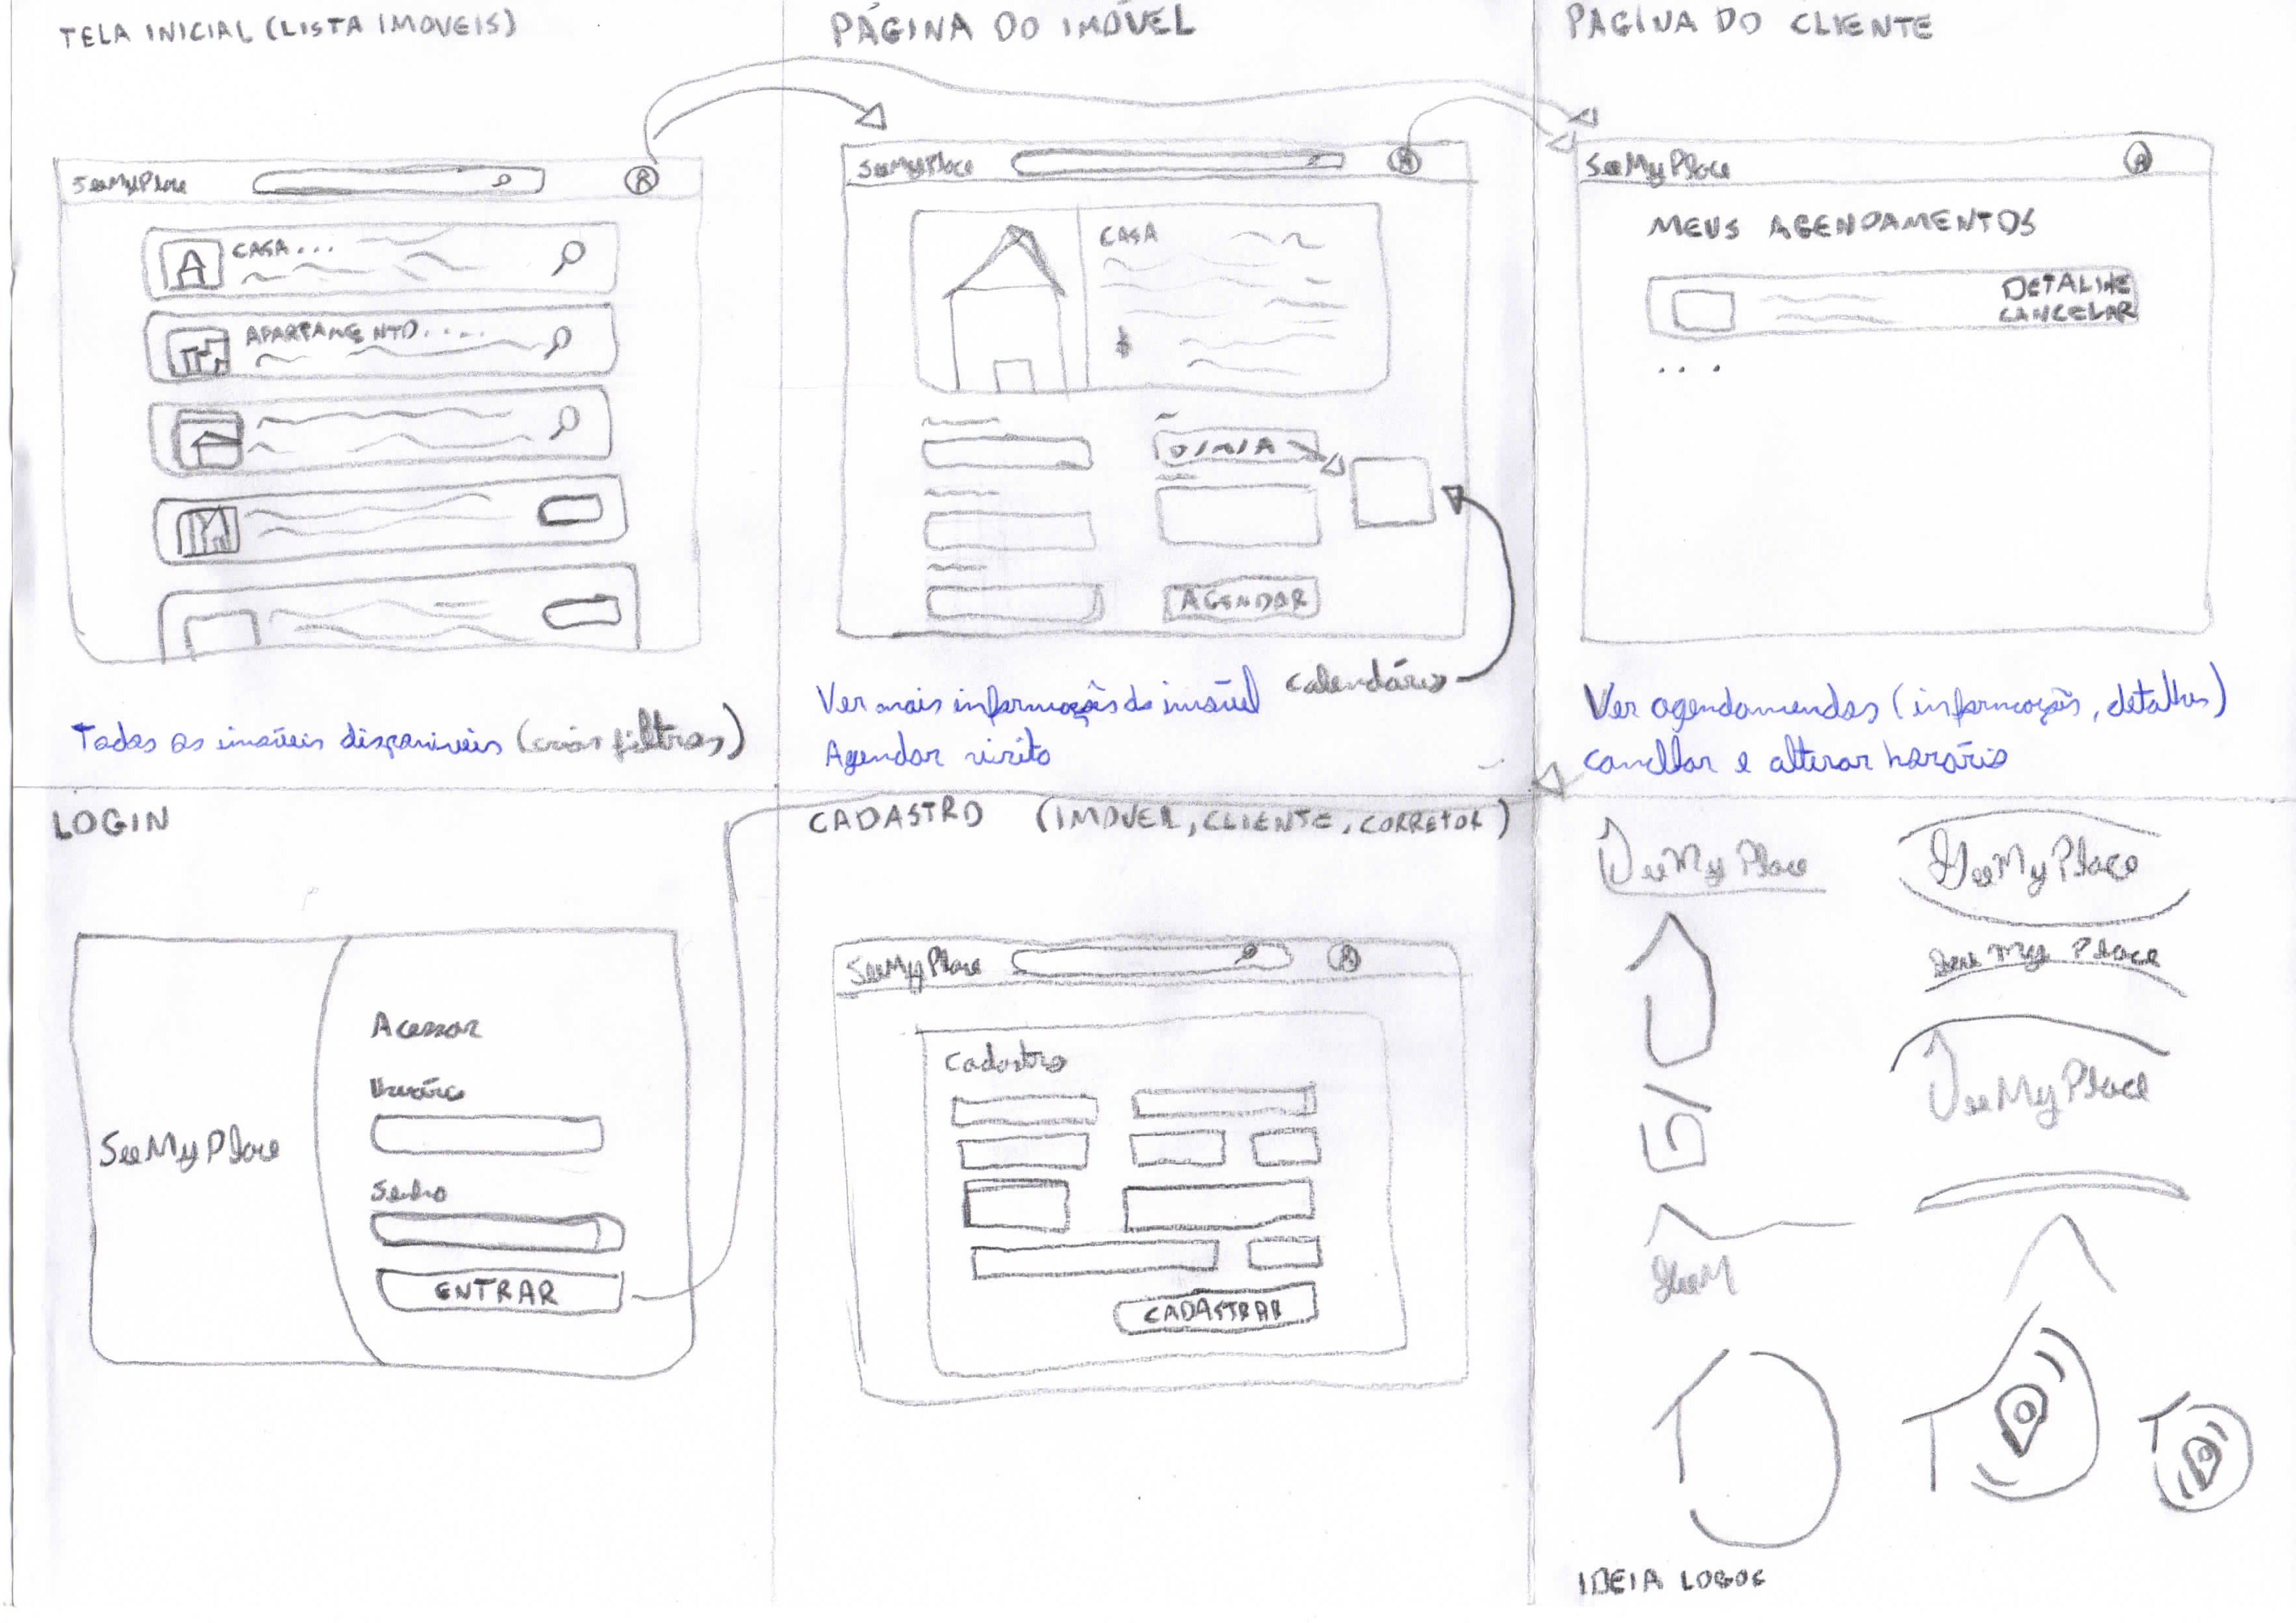 TELA INICIAL (LISTA IMOVEIS)
SeeMyPlace
CASA...
APARTAMENTO....
Todos os imóveis disponiveis (criar filtros)
PÁGINA DO IMÓVEL
SeeMyPlace
CASA
$
D/M/A
AGENDAR
calendário
Ver mais informações do imóvel
Agendar visita
PAGINA DO CLIENTE
SeeMyPlace
MEUS AGENDAMENTOS
DETALHE
CANCELAR
...
Ver agendamendos (informações, detalhes)
cancellar e alterar horário
LOGIN
SeeMyPlace
Acessar
Usuário
Senha
ENTRAR
CADASTRO (IMOVEL, CLIENTE, CORRETOR)
SeeMyPlace
Cadastro
CADASTRAR
SeeMyPlace
SeeMyPlace
See My Place
SeeMyPlace
SeeM
IDEIA LOGOS